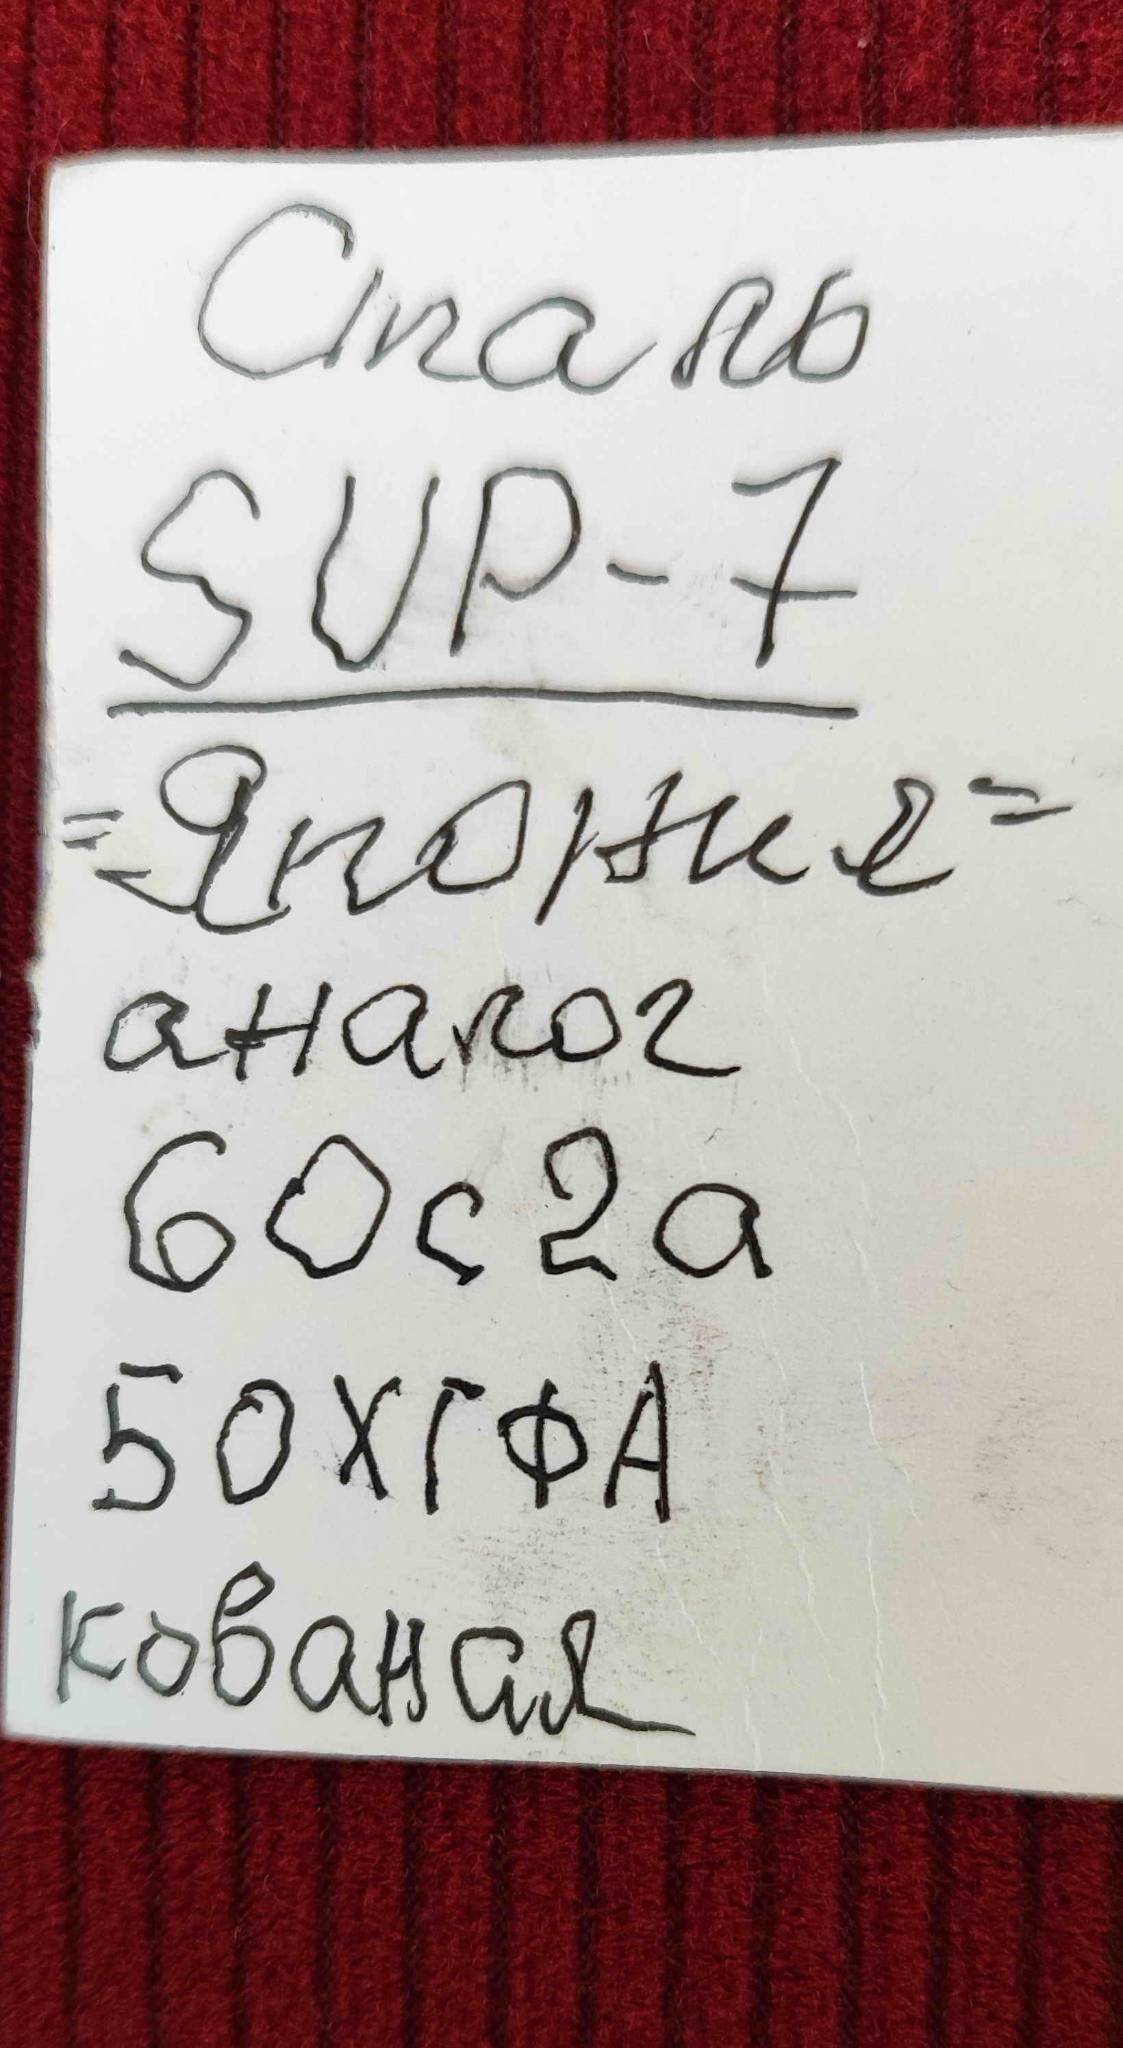 Сталь
SUP-7
=Япония=
аналог
60с2а
50ХГФА
кованая